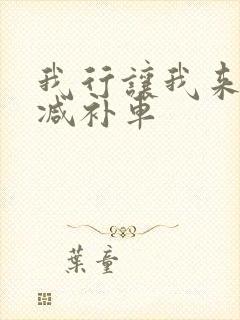 我行讓我来
减补车
葉童